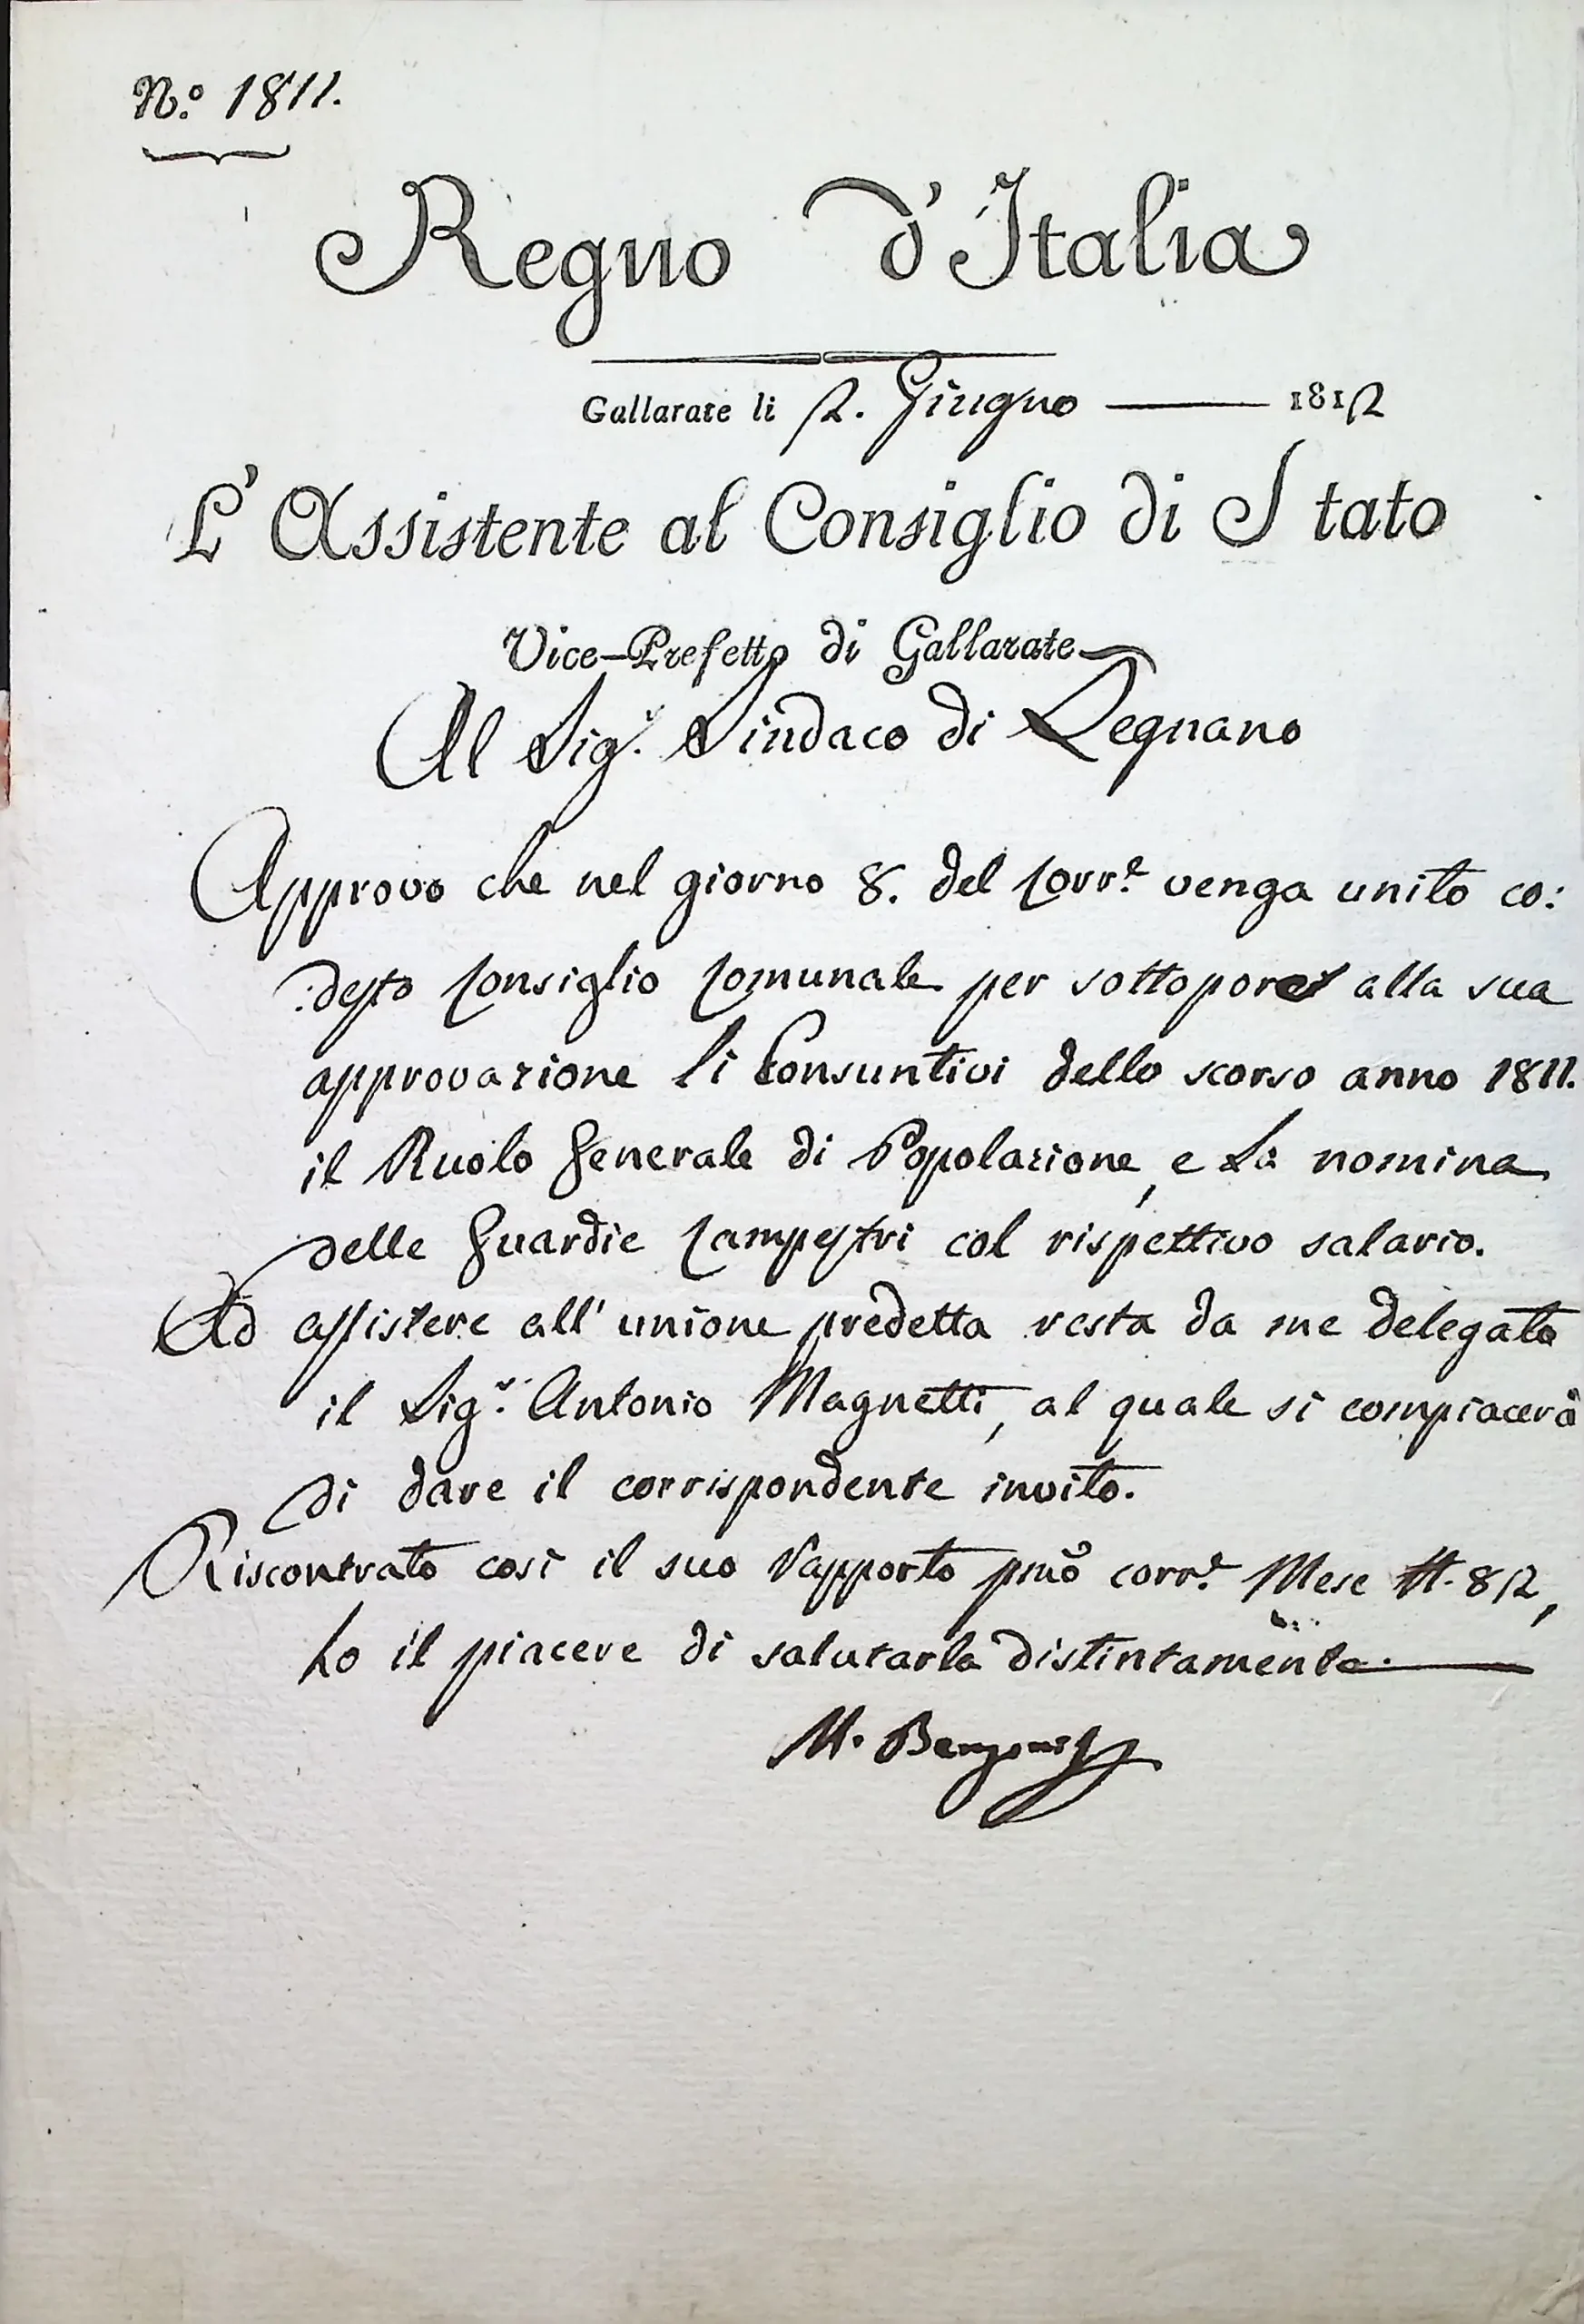 N.º 1811.
Regno d'Italia
Gallarate li 2. Giugno 1812
L'Assistente al Consiglio di Stato
Vice-Prefetto di Gallarate
Al Sig.r Sindaco di Legnano
Approvo che nel giorno 8. del Corr.e venga unito co:
:desto Consiglio Comunale per sottoporre alla sua
approvazione li Consuntivi dello scorso anno 1811.
il Ruolo Generale di Popolazione, e la nomina
delle Guardie Campestri col rispettivo salario.
Ad assistere all'unione predetta resta da me delegato
il Sig.r Antonio Magnetti, al quale si compiacerà
di dare il corrispondente invito.
Riscontrato così il suo Rapporto pmo corr.e Mese N. 82,
ho il piacere di salutarla distintamente.
M. Benzoni